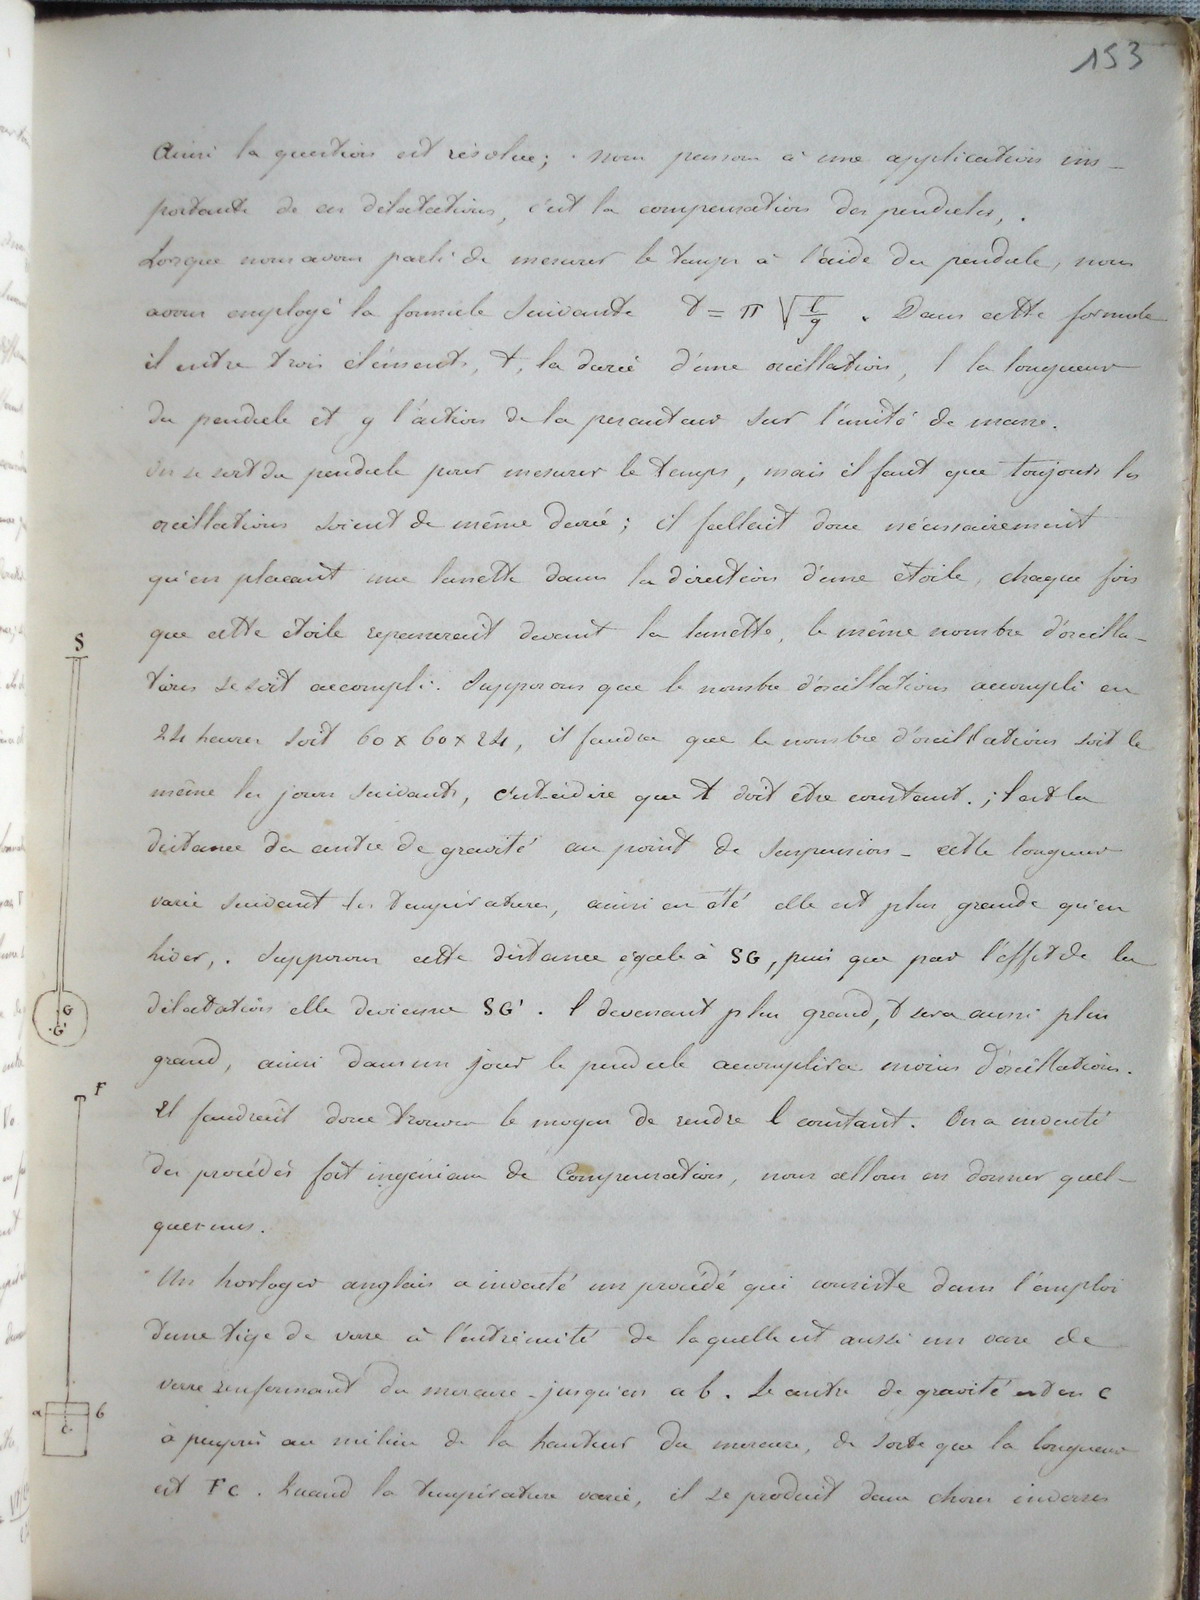 153
Ainsi la question est résolue; nous passons à une application im-
portante de ces dilatations, c'est la compensation des pendules,.
Lorsque nous avons parlé de mesurer le temps à l'aide du pendule, nous
avons employé la formule suivante t = π √l/g . Dans cette formule
il entre trois éléments, t, la durée d'une oscillation, l la longueur
du pendule et g l'action de la pesanteur sur l'unité de masse.
On se sert du pendule pour mesurer le temps, mais il faut que toujours les
oscillations soient de même durée; il fallait donc nécessairement
qu'en plaçant une lunette dans la direction d'une étoile, chaque fois
que cette étoile repasserait devant la lunette, le même nombre d'oscilla-
tions se soit accompli. Supposons que le nombre d'oscillations accompli en
24 heures soit 60 x 60 x 24, il faudra que le nombre d'oscillations soit le
même les jours suivants, c'est-à-dire que t doit être constant.; l est la
distance du centre de gravité au point de suspension - cette longueur
varie suivant les températures, ainsi en été elle est plus grande qu'en
hiver,. Supposons cette distance égale à SG, puis que par l'effet de la
dilatation elle devienne SG'. l devenant plus grand, t sera aussi plus
grand, ainsi dans un jour le pendule accomplira moins d'oscillations.
Il faudrait donc trouver le moyen de rendre l constant. On a inventé
des procédés fort ingénieux de Compensation, nous allons en donner quel-
ques-uns.
Un horloger anglais a inventé un procédé qui consiste dans l'emploi
d'une tige de verre à l'extrémité de laquelle est aussi un vase de
verre renfermant du mercure jusqu'en ab. Le centre de gravité est en C
à peu près au milieu de la hauteur du mercure, de sorte que la longueur
est FC. Quand la température varie, il se produit deux choses inverses
S
G
G'
F
a
b
C